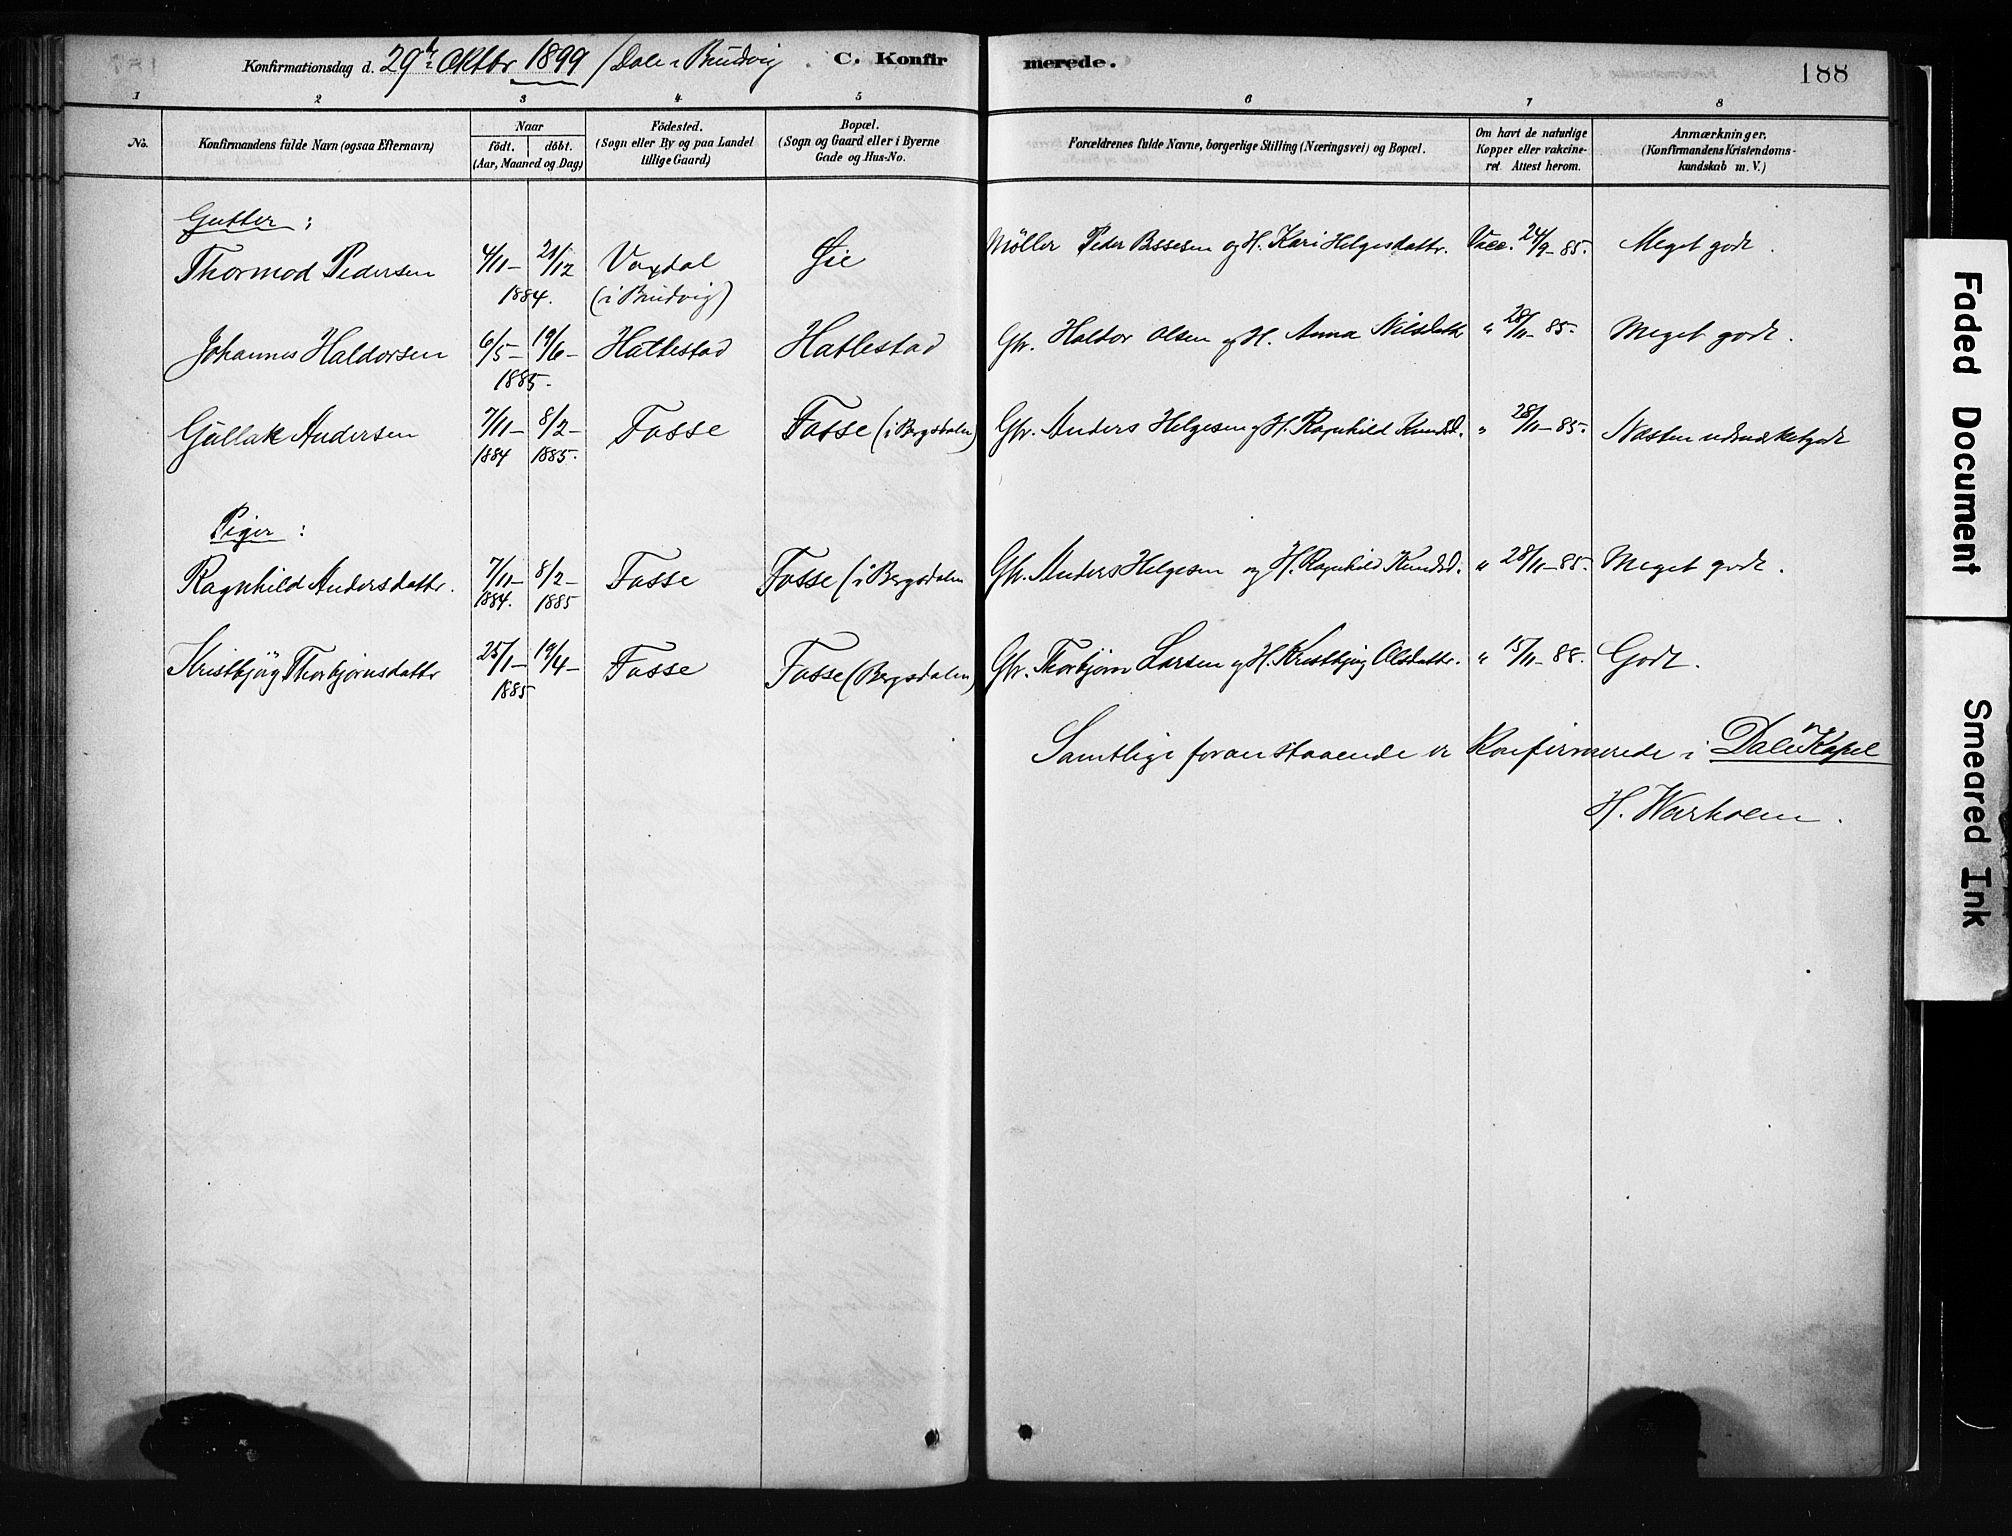 Konfirmationsdag d. 29de Oktbr 1899 / Dale i Brudvig C. Konfirmerede. 188
1 2 3 4 5 6 7 8
No. Konfirmandens fulde Navn (ogsaa Efternavn) Naar født. døbt. (Aar, Maaned og Dag) Fødested. (Sogn eller By og paa Landet tillige Gaard) Bopæl. (Sogn og Gaard eller i Byerne Gade og Hus-No. Forældrenes fulde Navne, borgerlige Stilling (Næringsvei) og Bopæl. Om havt de naturlige Kopper eller vakcineret. Attest herom. Anmærkninger. (Konfirmandens Kristendomskundskab m. V.)
Gutter:
Thormod Pedersen 4/11 - 21/12 1884. Vaxdal (i Brudvig) Øie Møller Peder Bessesen og H. Kari Helgesdattr. Vacc. 24/9 - 85. Meget godt.
Johannes Haldorsen 6/5 - 19/6 - 1885. Hatlestad Hatlestad Gbr. Haldor Olsen og H. Anna Nilsdattr " 28/11 - 85. Meget godt.
Gullak Andersen 7/11 - 1884 8/2 - 1885. Fosse Fosse (i Bergsdalen) Gbr. Anders Helgesen og H. Ragnhild Knudsd. " 28/11 - 85. Næsten udmærketgodt
Piger:
Ragnhild Andersdattr. 7/11 - 1884. 8/2 - 1885 Fosse Fosse (i Bergsdalen Gbr. Anders Helgesen og H. Ragnhild Knudsd. " 28/11 - 85. Meget godt.
Kristbjög Thorbjørnsdattr 25/1 - 19/4 - 1885 Fosse Fosse (Bergsdalen) Gbr. Thorbjørn Larsen og H. Kristbjög Olsdattr. " 15/11 - 88. Godt.
Samtlige foranstaaende er Konfirmerede i Dale Kapel
H.
Faded Document
Smeared Ink